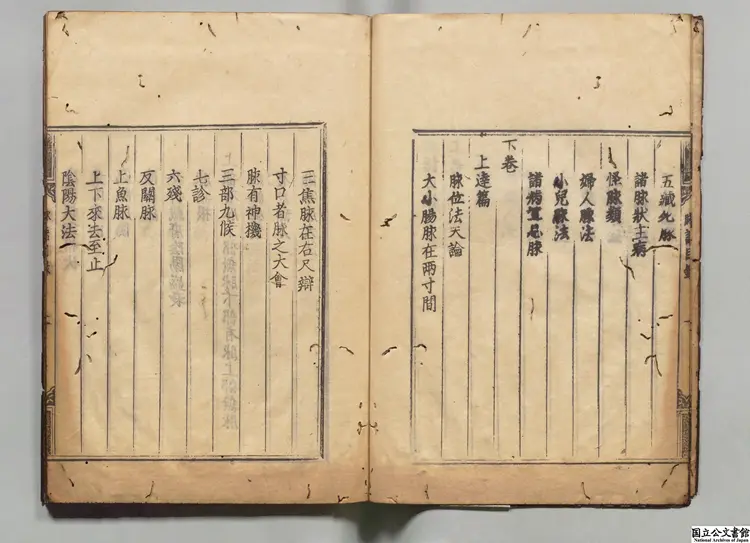 五臟九脉
諸脉狀主病
怪脉類
婦人脉法
小兒脉法
諸病宜忌脉
下卷
上達篇
脉位法天論
大小腸脉在兩寸間
三焦脉在右尺辯
寸口者脉之大會
脉有神機
三部九候
七診
六殘
反關脉
上魚脉
上下來去至止
陰陽大法
国立公文書館
National Archives of Japan